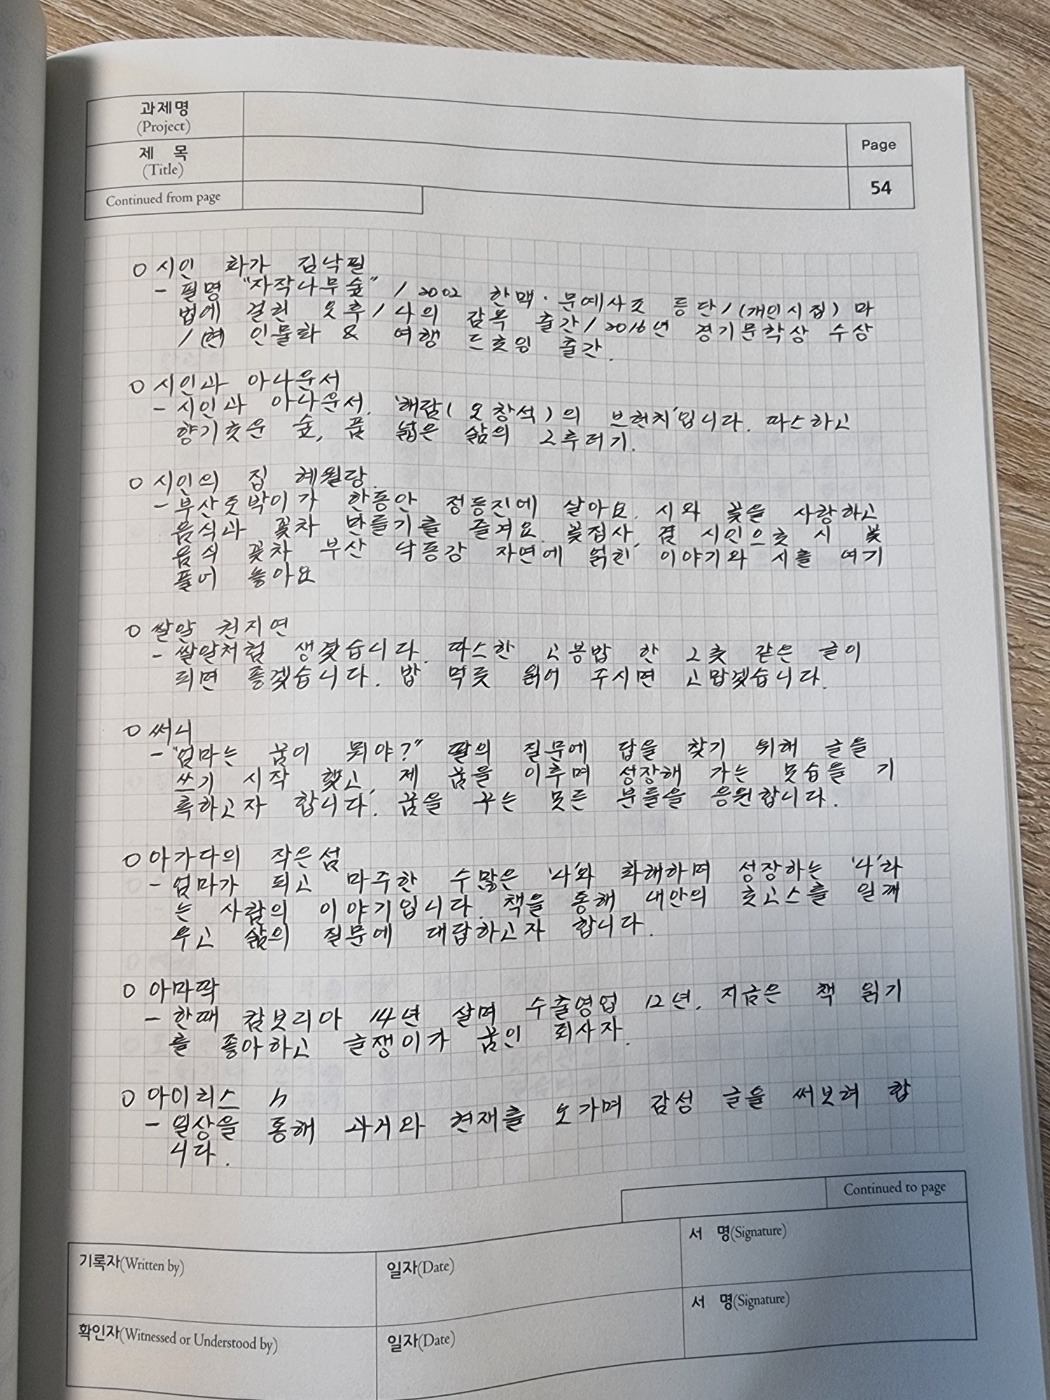 과제명
(Project)
제 목
(Title)
Page
54
Continued from page
○ 시인 화가 김낙필
- 필명 "자작나무숲" / 2002 한맥·문예사조 등단/(개인시집) 마
법에 걸린 오후/나의 감옥 출간/2016년 경기문학상 수상
/(현) 인물화 & 여행 드로잉 출간.
○ 시인과 아나운서
- 시인과 아나운서. '해담(오창석)의 브런치'입니다. 따스하고
향기로운 숲, 품 넓은 삶의 그루터기.
○ 시인의 집 혜월당
- 부산토박이가 한동안 정동진에 살아요. 시와 꽃을 사랑하고
음식과 꽃차 만들기를 즐겨요. 꽃집사, 겸 시인으로 시 꽃
음식 꽃차 부산 낙동강 자연에 얽힌 이야기와 시를 여기
풀어 놓아요
○ 쌀알 권지연
- 쌀알처럼 생겼습니다. 따스한 고봉밥 한 그릇 같은 글이
되면 좋겠습니다. 밥 먹듯 읽어 주시면 고맙겠습니다.
○ 써니
- "엄마는 꿈이 뭐야?" 딸의 질문에 답을 찾기 위해 글을
쓰기 시작 했고, 제 꿈을 이루며 성장해 가는 모습을 기
록하고자 합니다. 꿈을 꾸는 모든 분들을 응원합니다.
○ 아가다의 작은섬
- 엄마가 되고 마주한 수많은 '나'와 화해하며 성장하는 '나'라
는 사람의 이야기입니다. 책을 통해 내안의 로고스를 일깨
우고 삶의 질문에 대답하고자 합니다.
○ 아마딱
- 한때 캄보디아 14년 살며 수출영업 12년. 지금은 책 읽기
를 좋아하고 글쟁이가 꿈인 회사자.
○ 아이리스 h
- 일상을 통해 과거와 현재를 오가며 감성 글을 써보려 합
니다.
Continued to page
기록자(Written by)
일자(Date)
서 명(Signature)
확인자(Witnessed or Understood by)
일자(Date)
서 명(Signature)